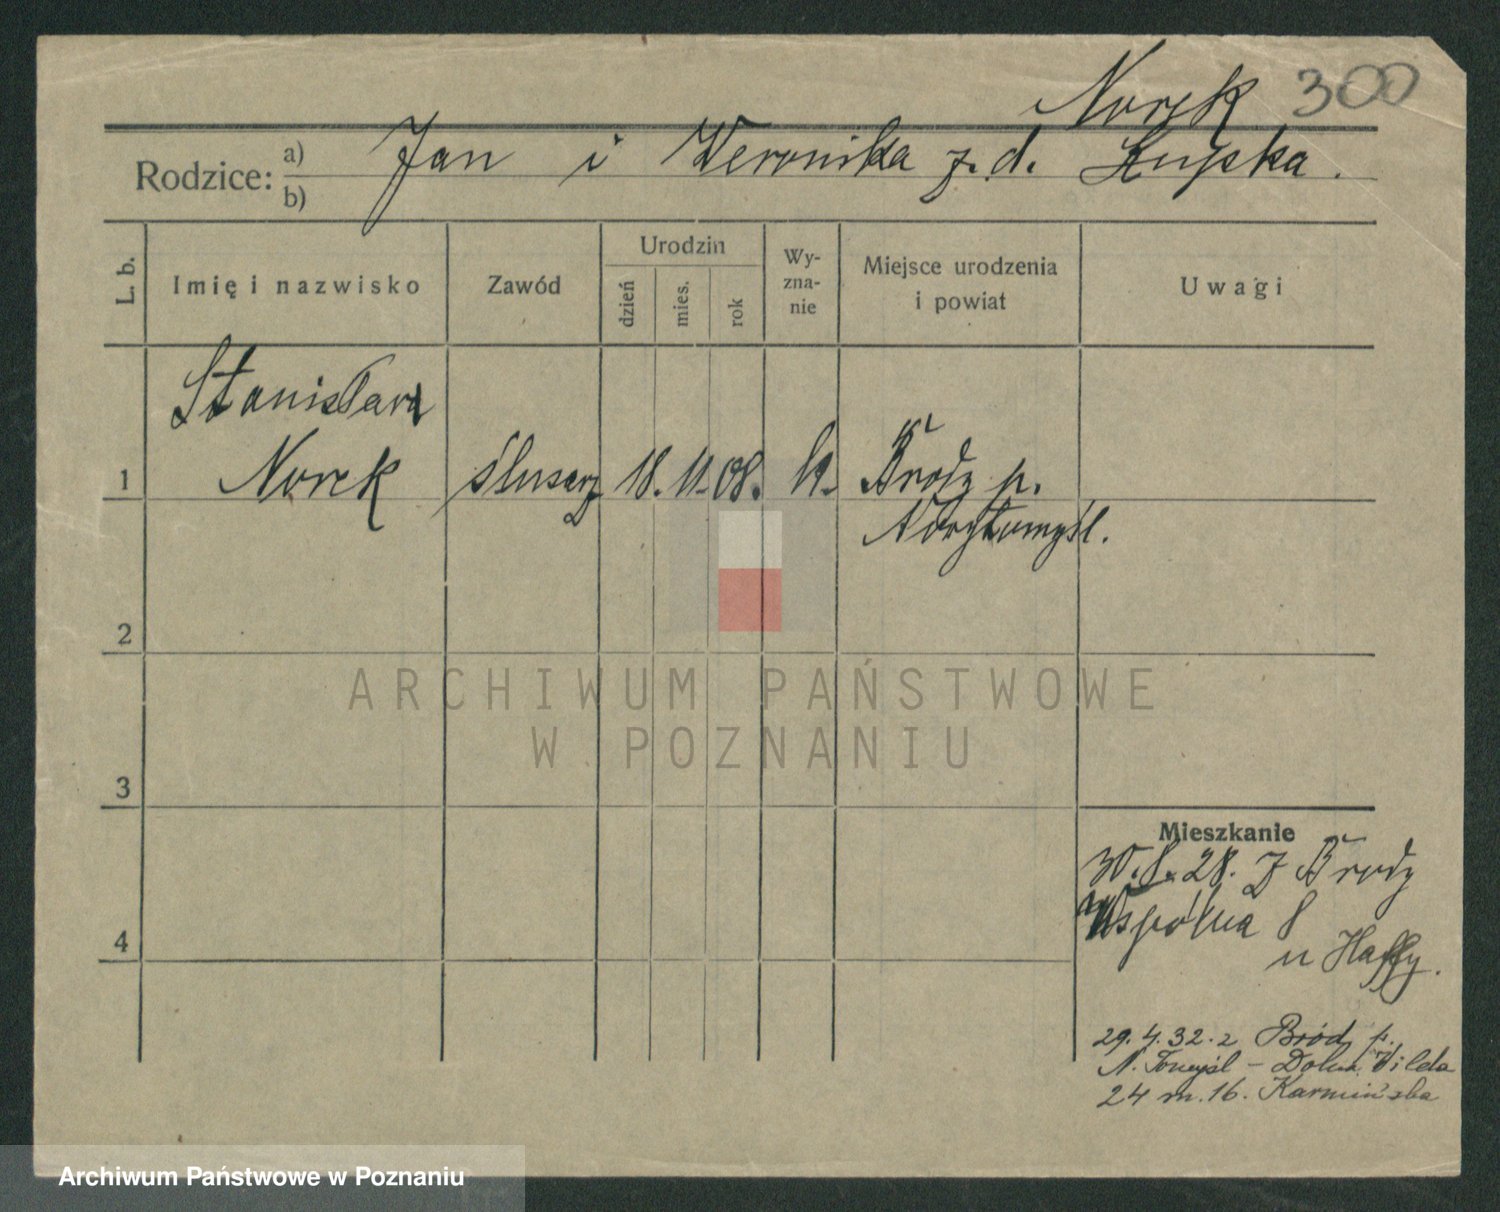 Norek 300
Rodzice: a) b) Jan i Weronika z.d. Łupska.
L. b. Imię i nazwisko Zawód Urodzin dzień mies. rok Wy-zna-nie Miejsce urodzenia i powiat Uwagi
Stanisław
1 Norek ślusarz 18. 11. 08. Brody p.
Nowytomyśl.
2
ARCHIWUM PAŃSTWOWE
W POZNANIU
3
Mieszkanie
30. 8. 28. z Brody
4 Wspólna 8
u Haffy.
29. 4. 32. z Bród p.
N. Tomyśl - Dolna Wilda
24 m. 16. Karmińska
Archiwum Państwowe w Poznaniu